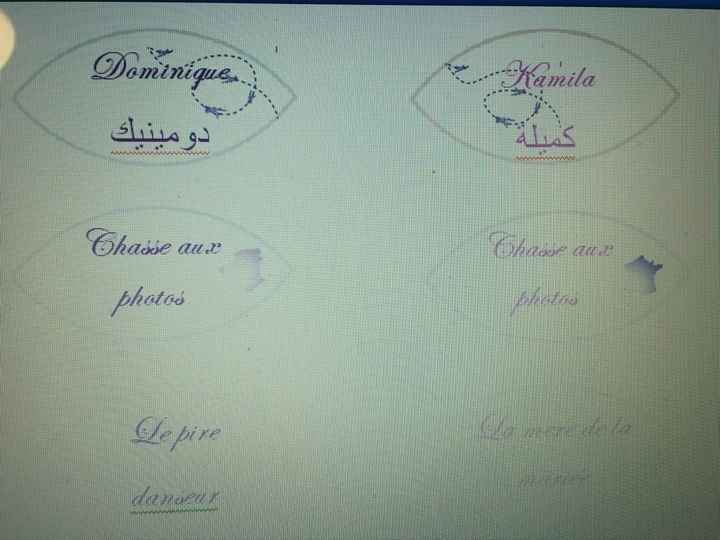 Dominique
دومينيك
Kamila
كميلة
Chasse aux
photos
Chasse aux
photos
Le pire
danseur
La mère de la
mariée